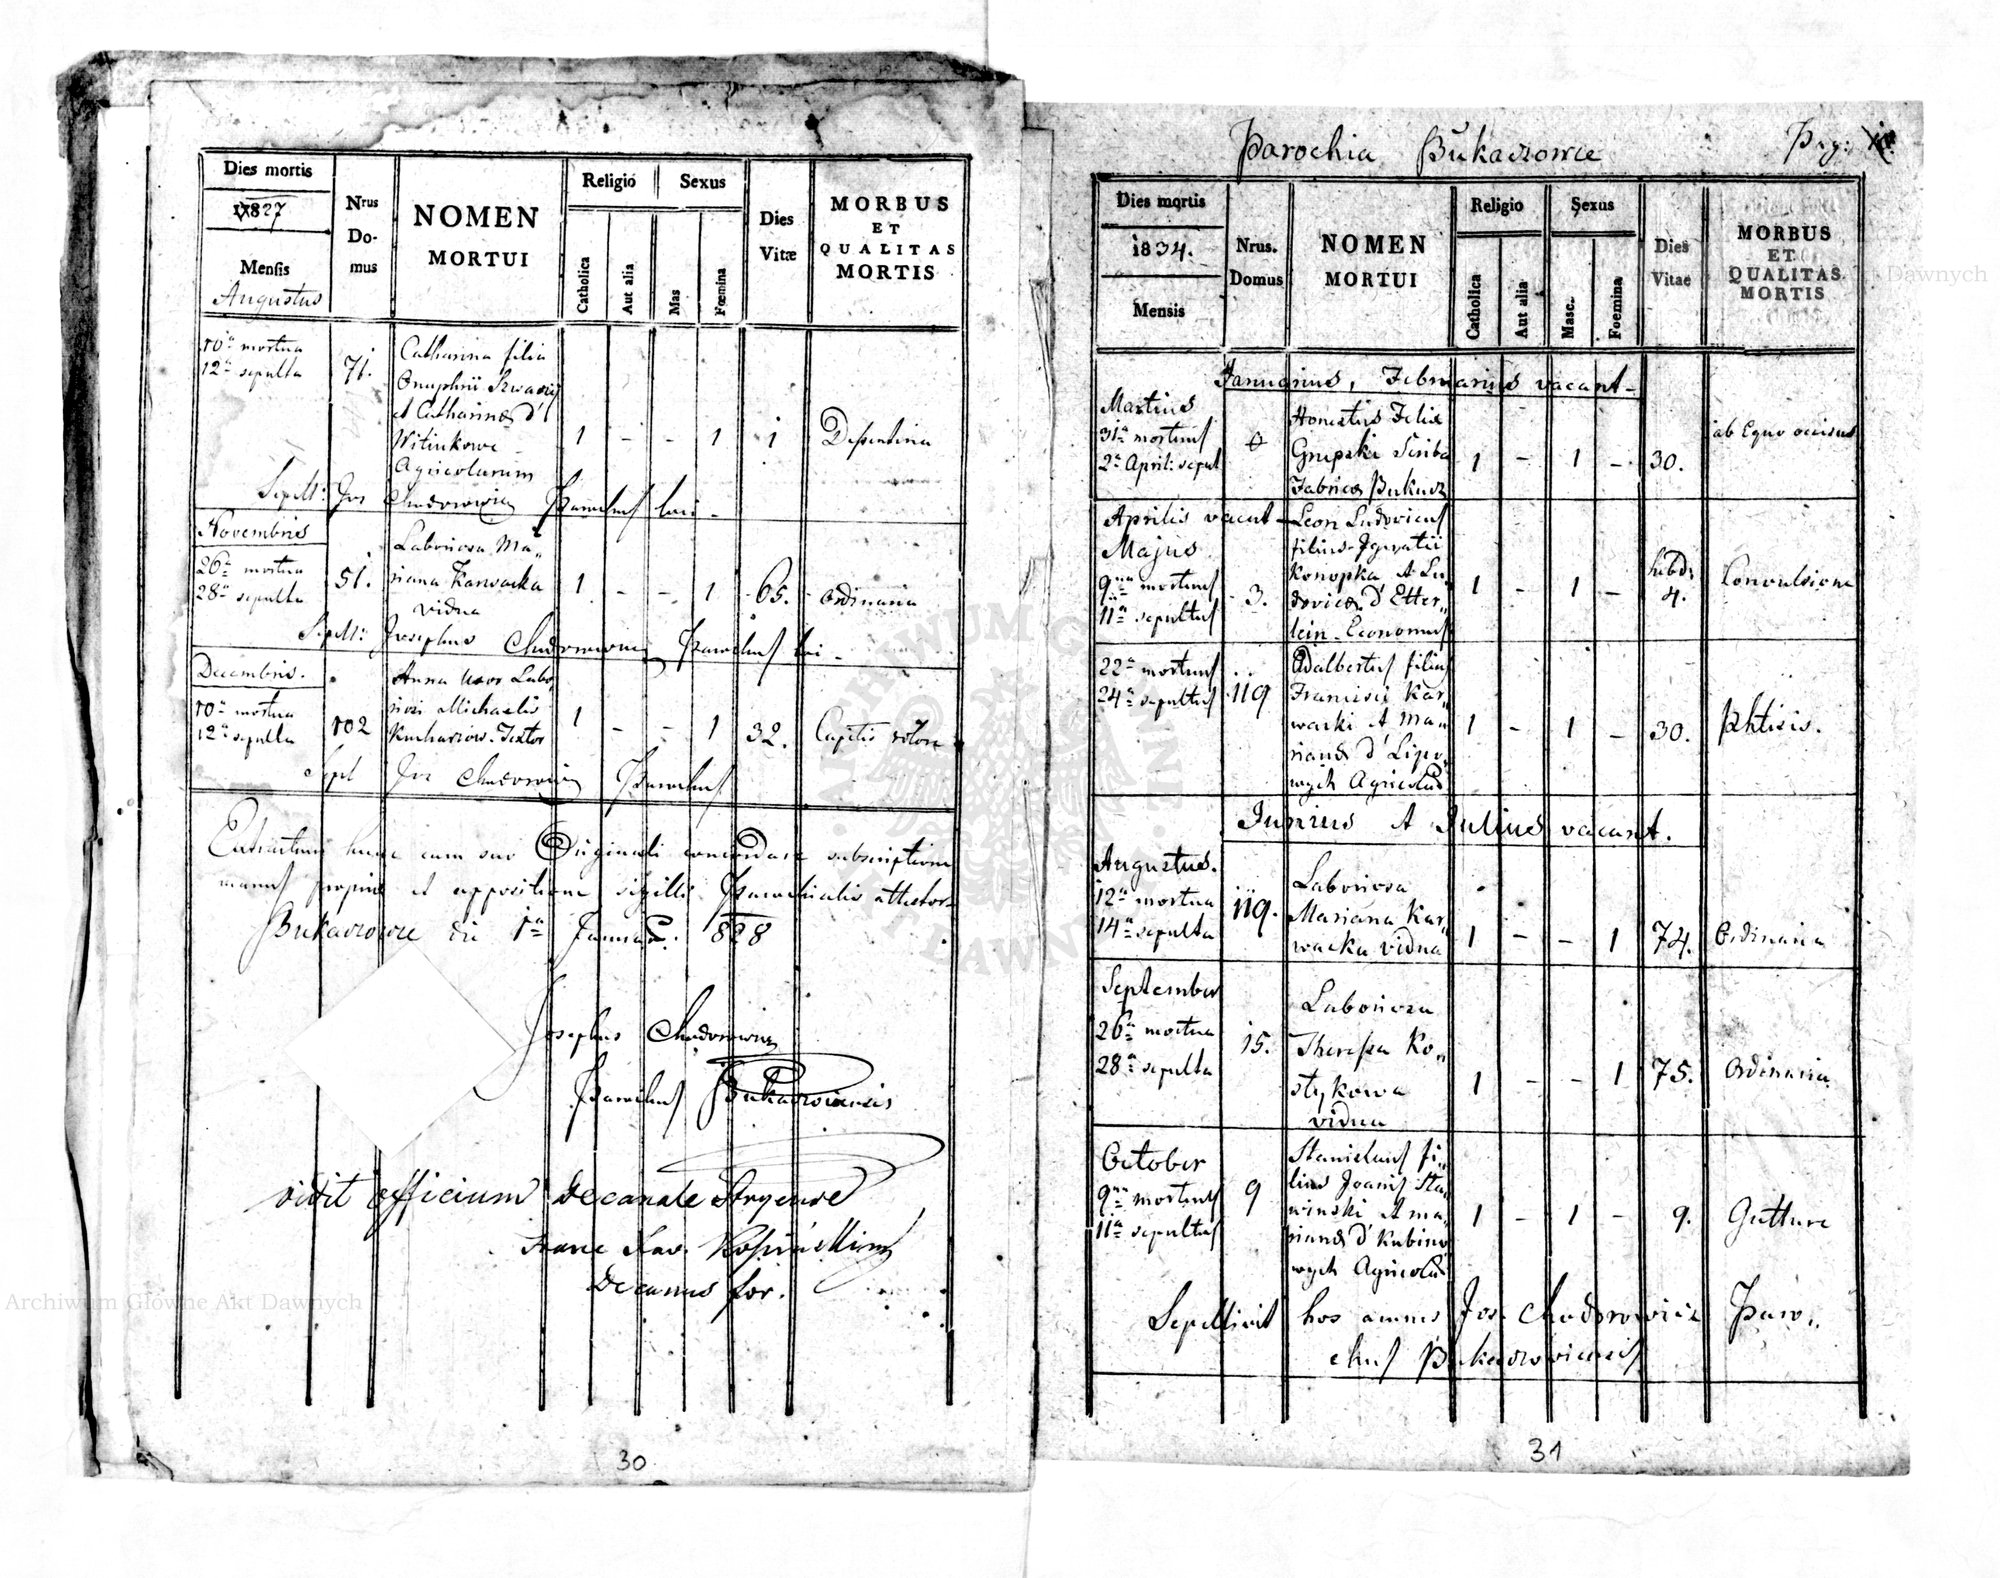 Dies mortis
1827
Mensis
Augustus
Nrus
Do-
mus
NOMEN
MORTUI
Religio
Catholica
Aut alia
Sexus
Mas
Fœmina
Dies
Vitæ
MORBUS
ET
QUALITAS
MORTIS
10a mortua
12a sepulta
71.
Catharina filia
Onuphrii
et Catharinæ d'
Witiukowe
Agricolarum
1 - - 1 1
Sepel: Jos Chodorowicz Parochus loci -
Novembris
26a mortua
28a sepulta
51.
Laboriosa Ma„
riana Karwacka
vidua
1 - - 1 65. ordinaria
Sepel: Josephus Chodorowicz Parochus loci -
Decembris.
10a mortua
12a sepulta
102
Anna uxor Labo„
riosi Michaelis
Kucharzow. Textor
1 - - 1 32. Capitis dolore
Sepel Jos Chodorowicz Parochus
Extractum hunc cum suo Originali concordare subscriptione
manus propriæ et appositione sigilli Parochialis attestor
Bukaczowce die 1a Januar. 828
Josephus Chodorowicz
Parochus Bukaczoviensis
vidit officium Decanale Stryense
Franc Xav.
Decanus for.
30
Parochia Bukaczowce
Pag:
Dies mortis
1834.
Mensis
Nrus.
Domus
NOMEN
MORTUI
Religio
Catholica
Aut alia
Sexus
Masc.
Foemina
Dies
Vitae
MORBUS
ET
QUALITAS
MORTIS
Januarius, Februarius vacant -
Martius
31a mortuus
2a April: sepult
Honestus Felix
Grupski Scriba
Fabricæ Bukacz
1 - 1 - 30.
ab Equo occisus
Aprilis vacat -
Majus
9na mortuus
11a sepultus
3.
Leon Ludovicus
filius Ignatii
Konopka et Lu„
dovicæ d' Etter„
lein Economus
1 - 1 -
hebd:
4.
Convulsione
22a mortuus
24a sepultus
119
Adalbertus filius
Francisci Kar„
wacki et Ma„
rianæ d' Lipo„
wych Agricolæ
1 - 1 - 30. Phtisis.
Junius et Julius vacant.
Augustus.
12a mortua
14a sepulta
119.
Laboriosa
Mariana Kar„
wacka vidua
1 - - 1 74. Ordinaria
September
26a mortua
28a sepulta
15.
Laboriosa
Theressa Ko„
stykowa
vidua
1 - - 1 75. Ordinaria
October
9na mortuus
11a sepultus
9
Stanislaus fi„
lius Joannis Sta„
winski et Ma„
rianæ d' Kubino„
wych Agricolæ
1 - 1 - 9. Gutture
Sepellivit hos omnes Jos. Chodorowicz Paro„
chus Bukaczoviensis
31
Archiwum Główne Akt Dawnych
Archiwum Główne Akt Dawnych
ARCHIWUM GŁÓWNE AKT DAWNYCH